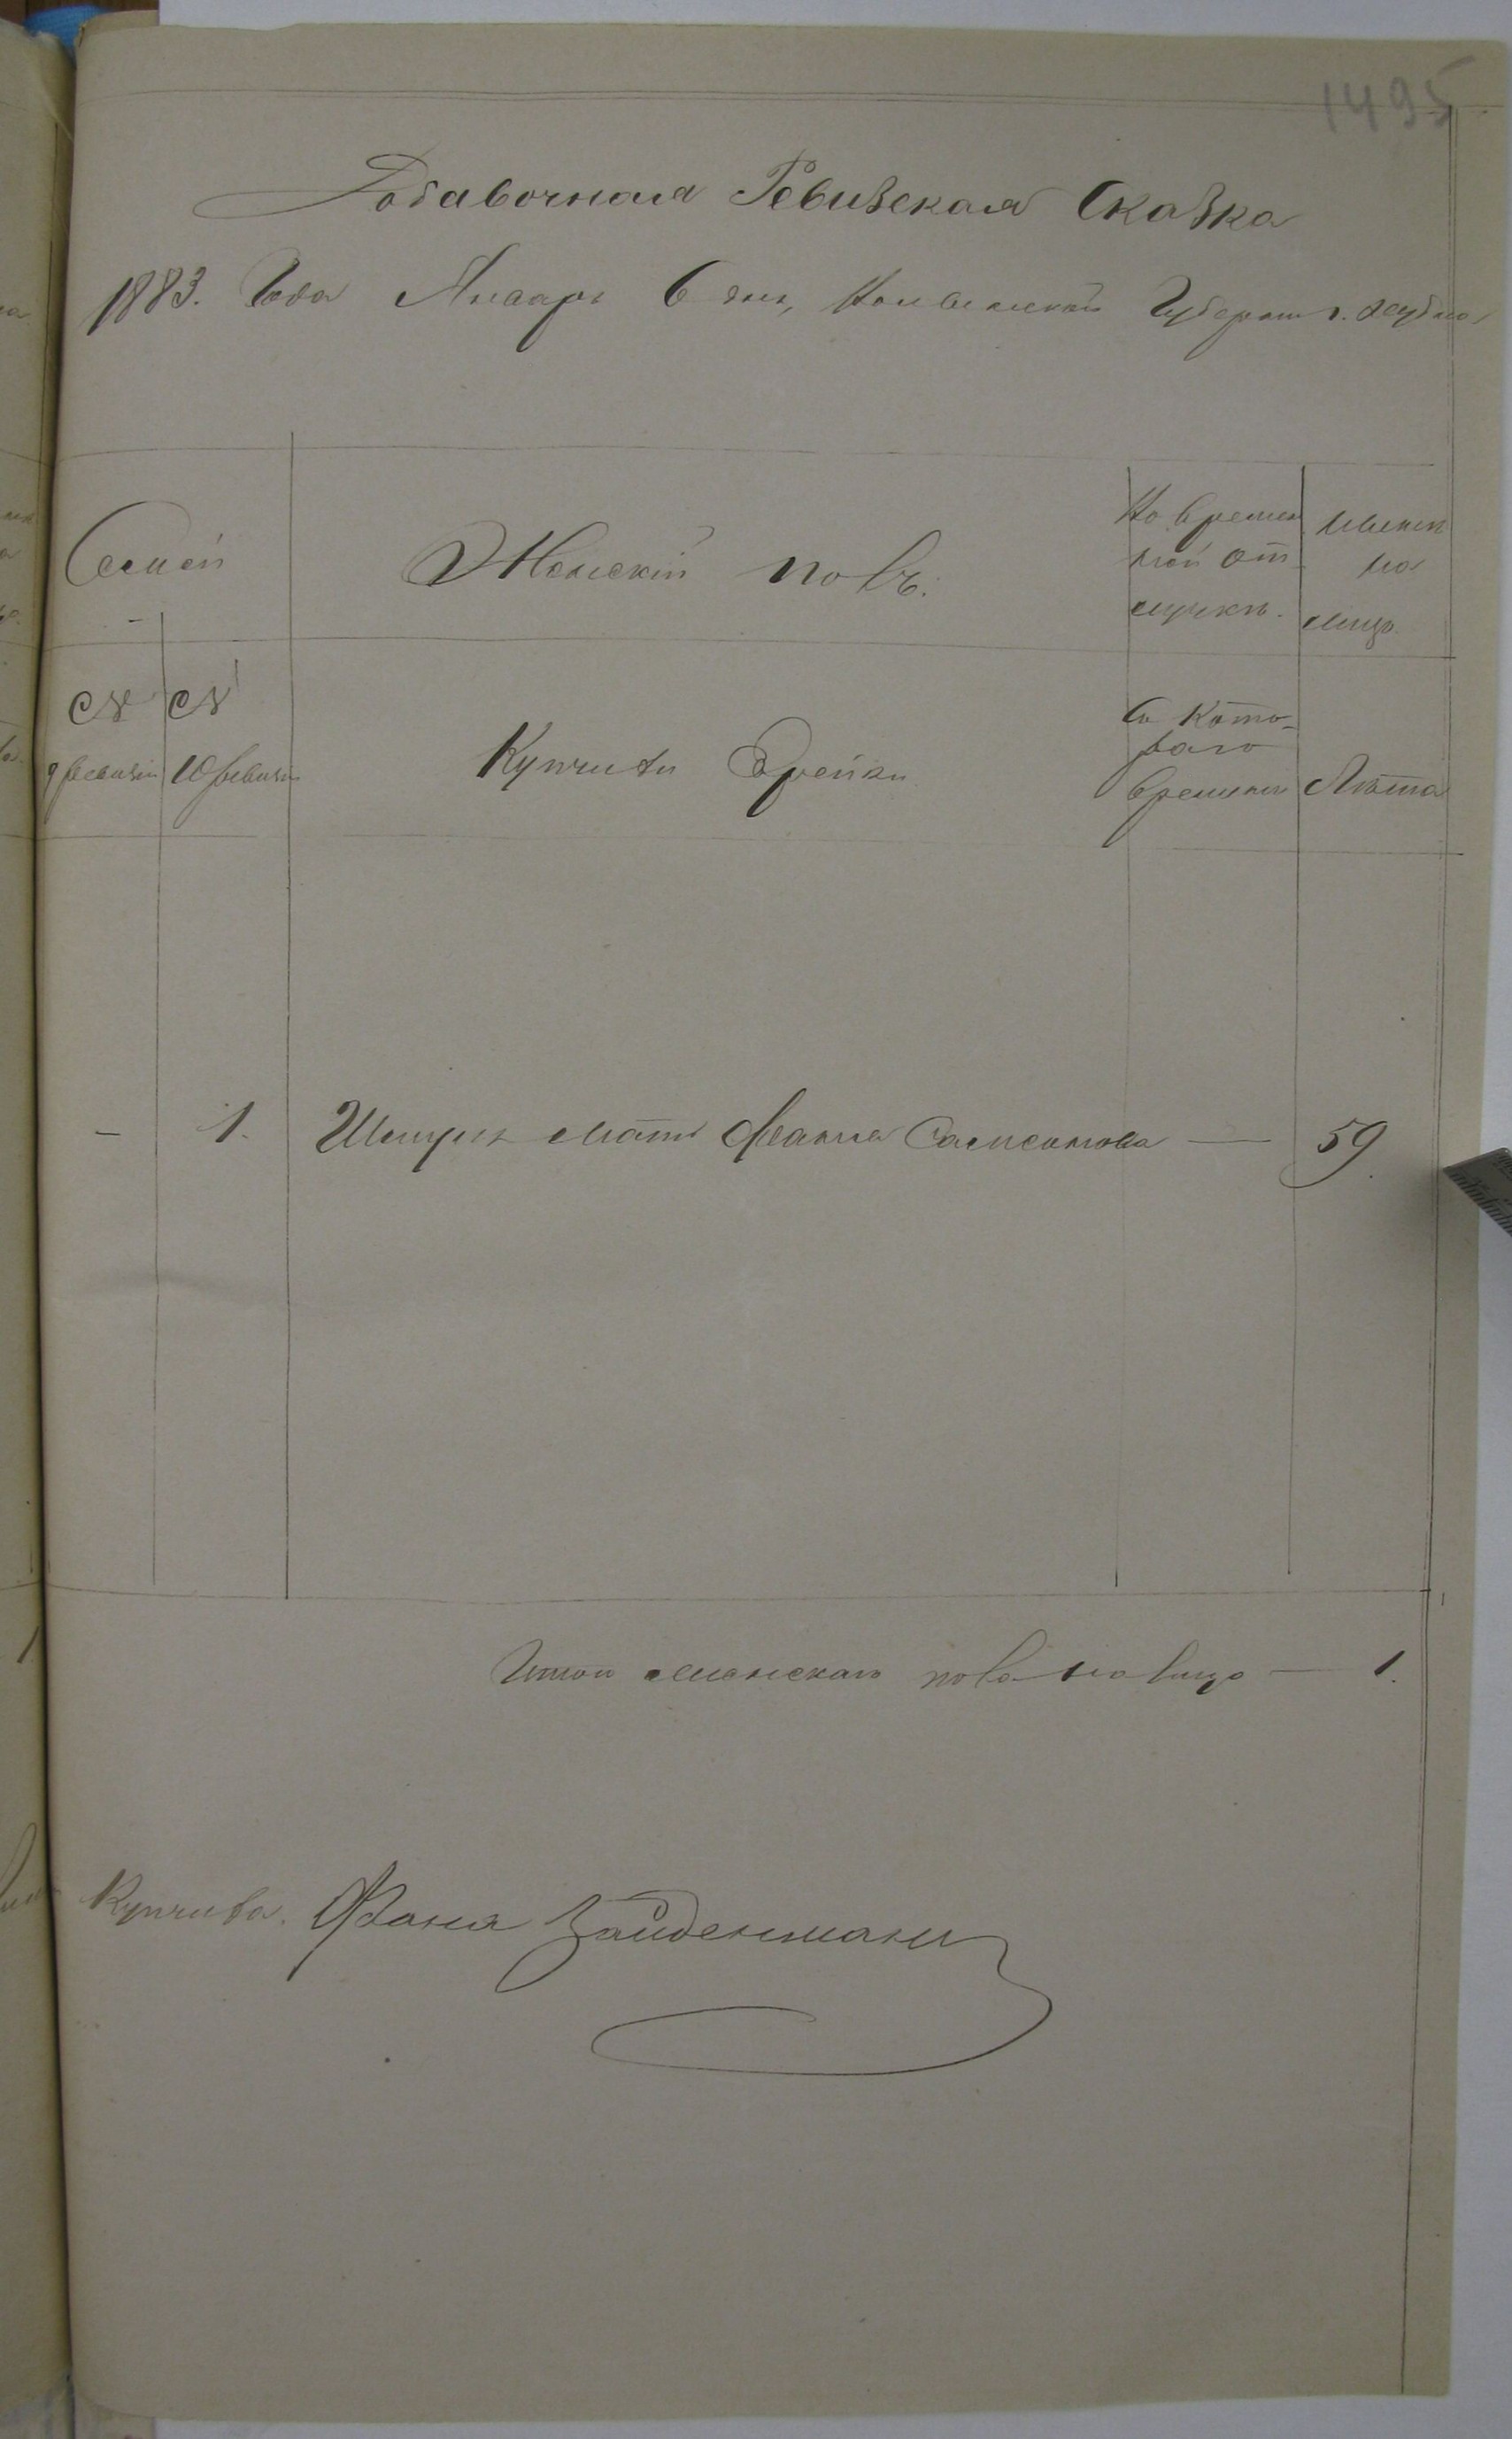 1495
Добавочная Ревизская Сказка
1883. Года Январь 6 дня, Волынской Губернии г. Дубно
Семей
Женскій полъ.
Во времен
ной от
лучкѣ.
Имѣет
на
лицо
№ №
9 ревизіи 10 ревизіи
Купчихи Еврейки
Съ кото-
раго
времени
Лѣта
- 1. мать Фаня Самсонова — 59.
Итого женскаго пола на лицо — 1.
Купчиха. Фаня Зайденман